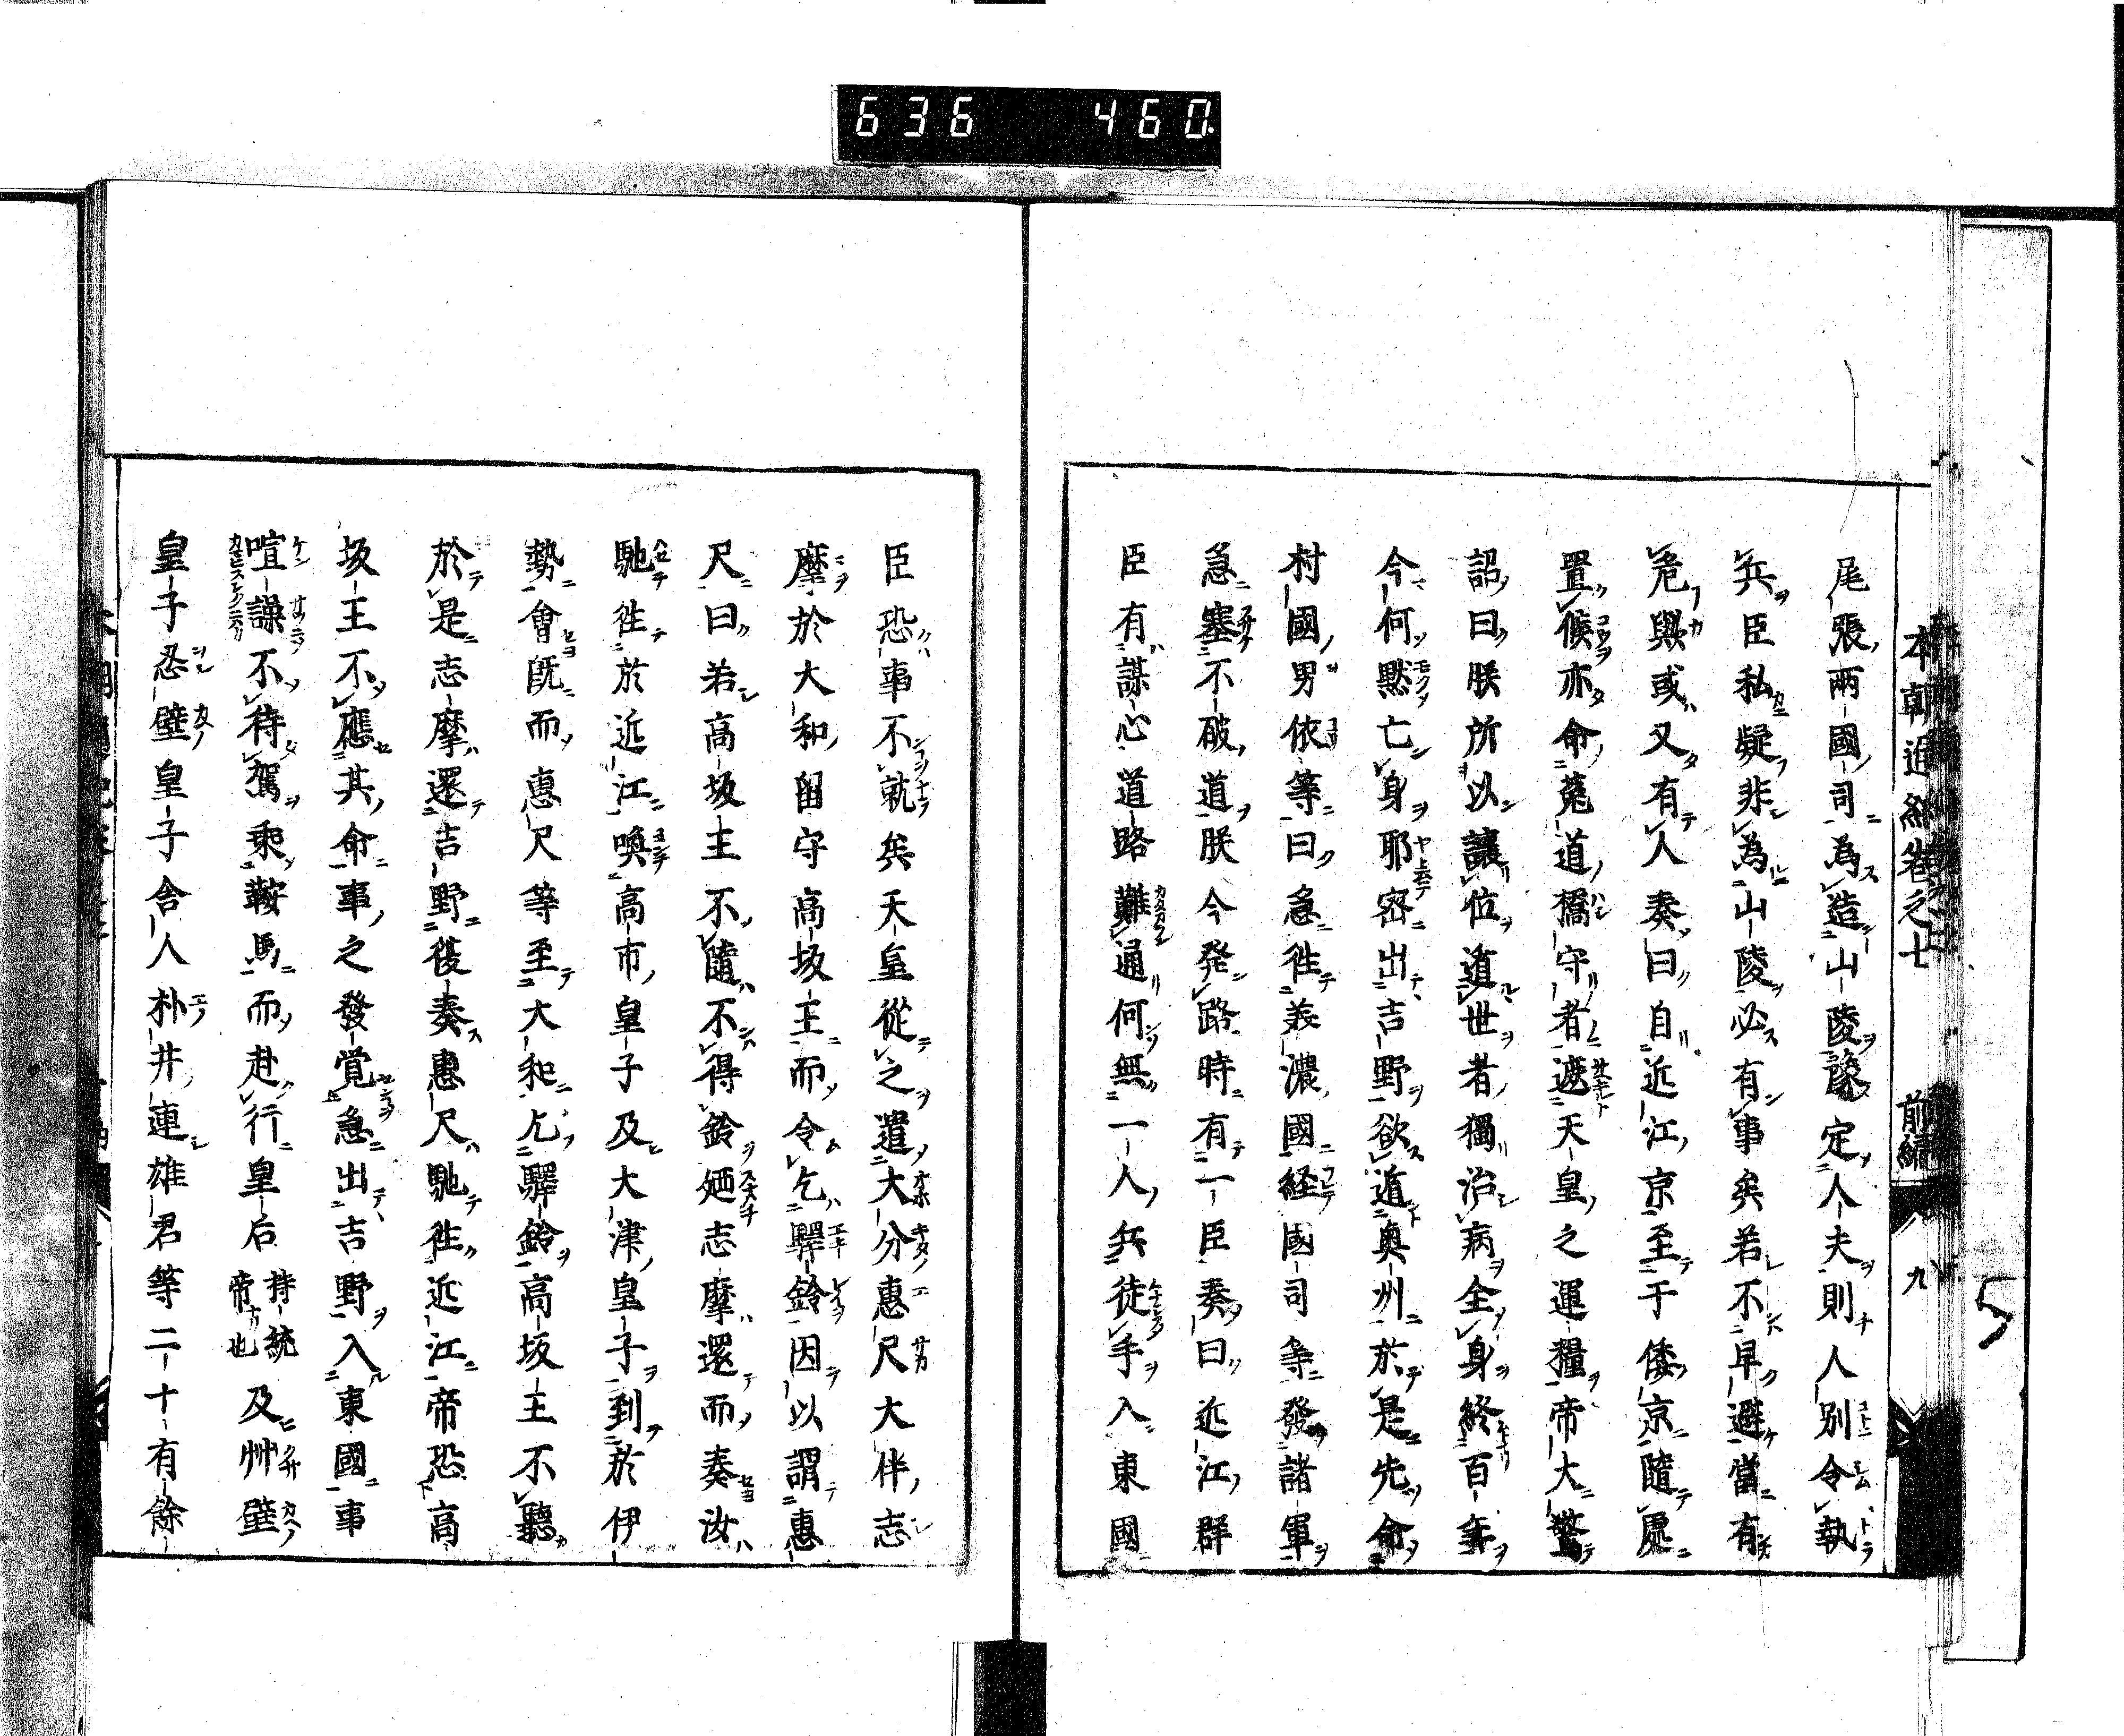 636 460
本朝通紀卷之七 前編 九
尾張兩國司為造山陵豫定人夫則人別令執
兵臣私疑非為山陵必有事矣若不早避當有
危歟或又有人奏曰自近江京至于倭京隨處
置候亦命菟道橋守者遮天皇之運糧帝大驚
詔曰朕所以讓位遁世者獨治病全身終百年
今何默亡身耶密出吉野欲道奥州於是先命
村國男依等曰急徃美濃國経國司等發諸軍
急塞不破道朕今発路時有一臣奏曰近江群
臣有謀心道路難通何無一人兵徒手入東國
臣恐事不就矣天皇從之遣大分惠尺大伴志
摩於大和留守高坂王而令乞驛鈴因以謂惠
尺曰若高坂王不隨不得鈴廼志摩還而奏汝
馳徃於近江喚高市皇子及大津皇子到於伊
勢會既而惠尺等至大和乞驛鈴高坂王不聽
於是志摩還吉野復奏惠尺馳徃近江帝恐高
坂王不應其命事之發覚急出吉野入東國事
喧譟不待駕乘鞍馬而赴行皇后持統帝也及艸壁
皇子忍壁皇子舍人朴井連雄君等二十有餘
5